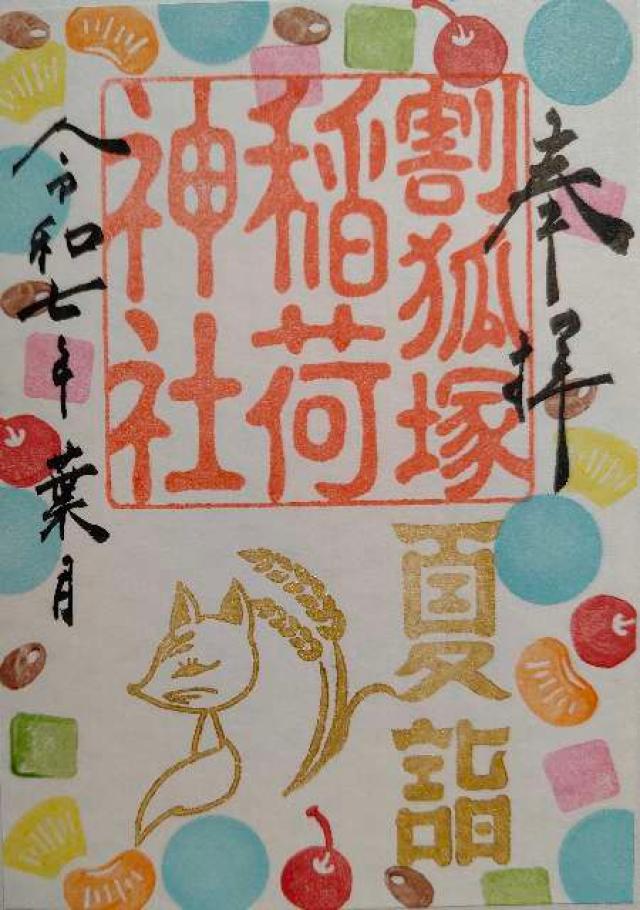 奉拝
割狐塚
稲荷
神社
令和七年葉月
夏詣